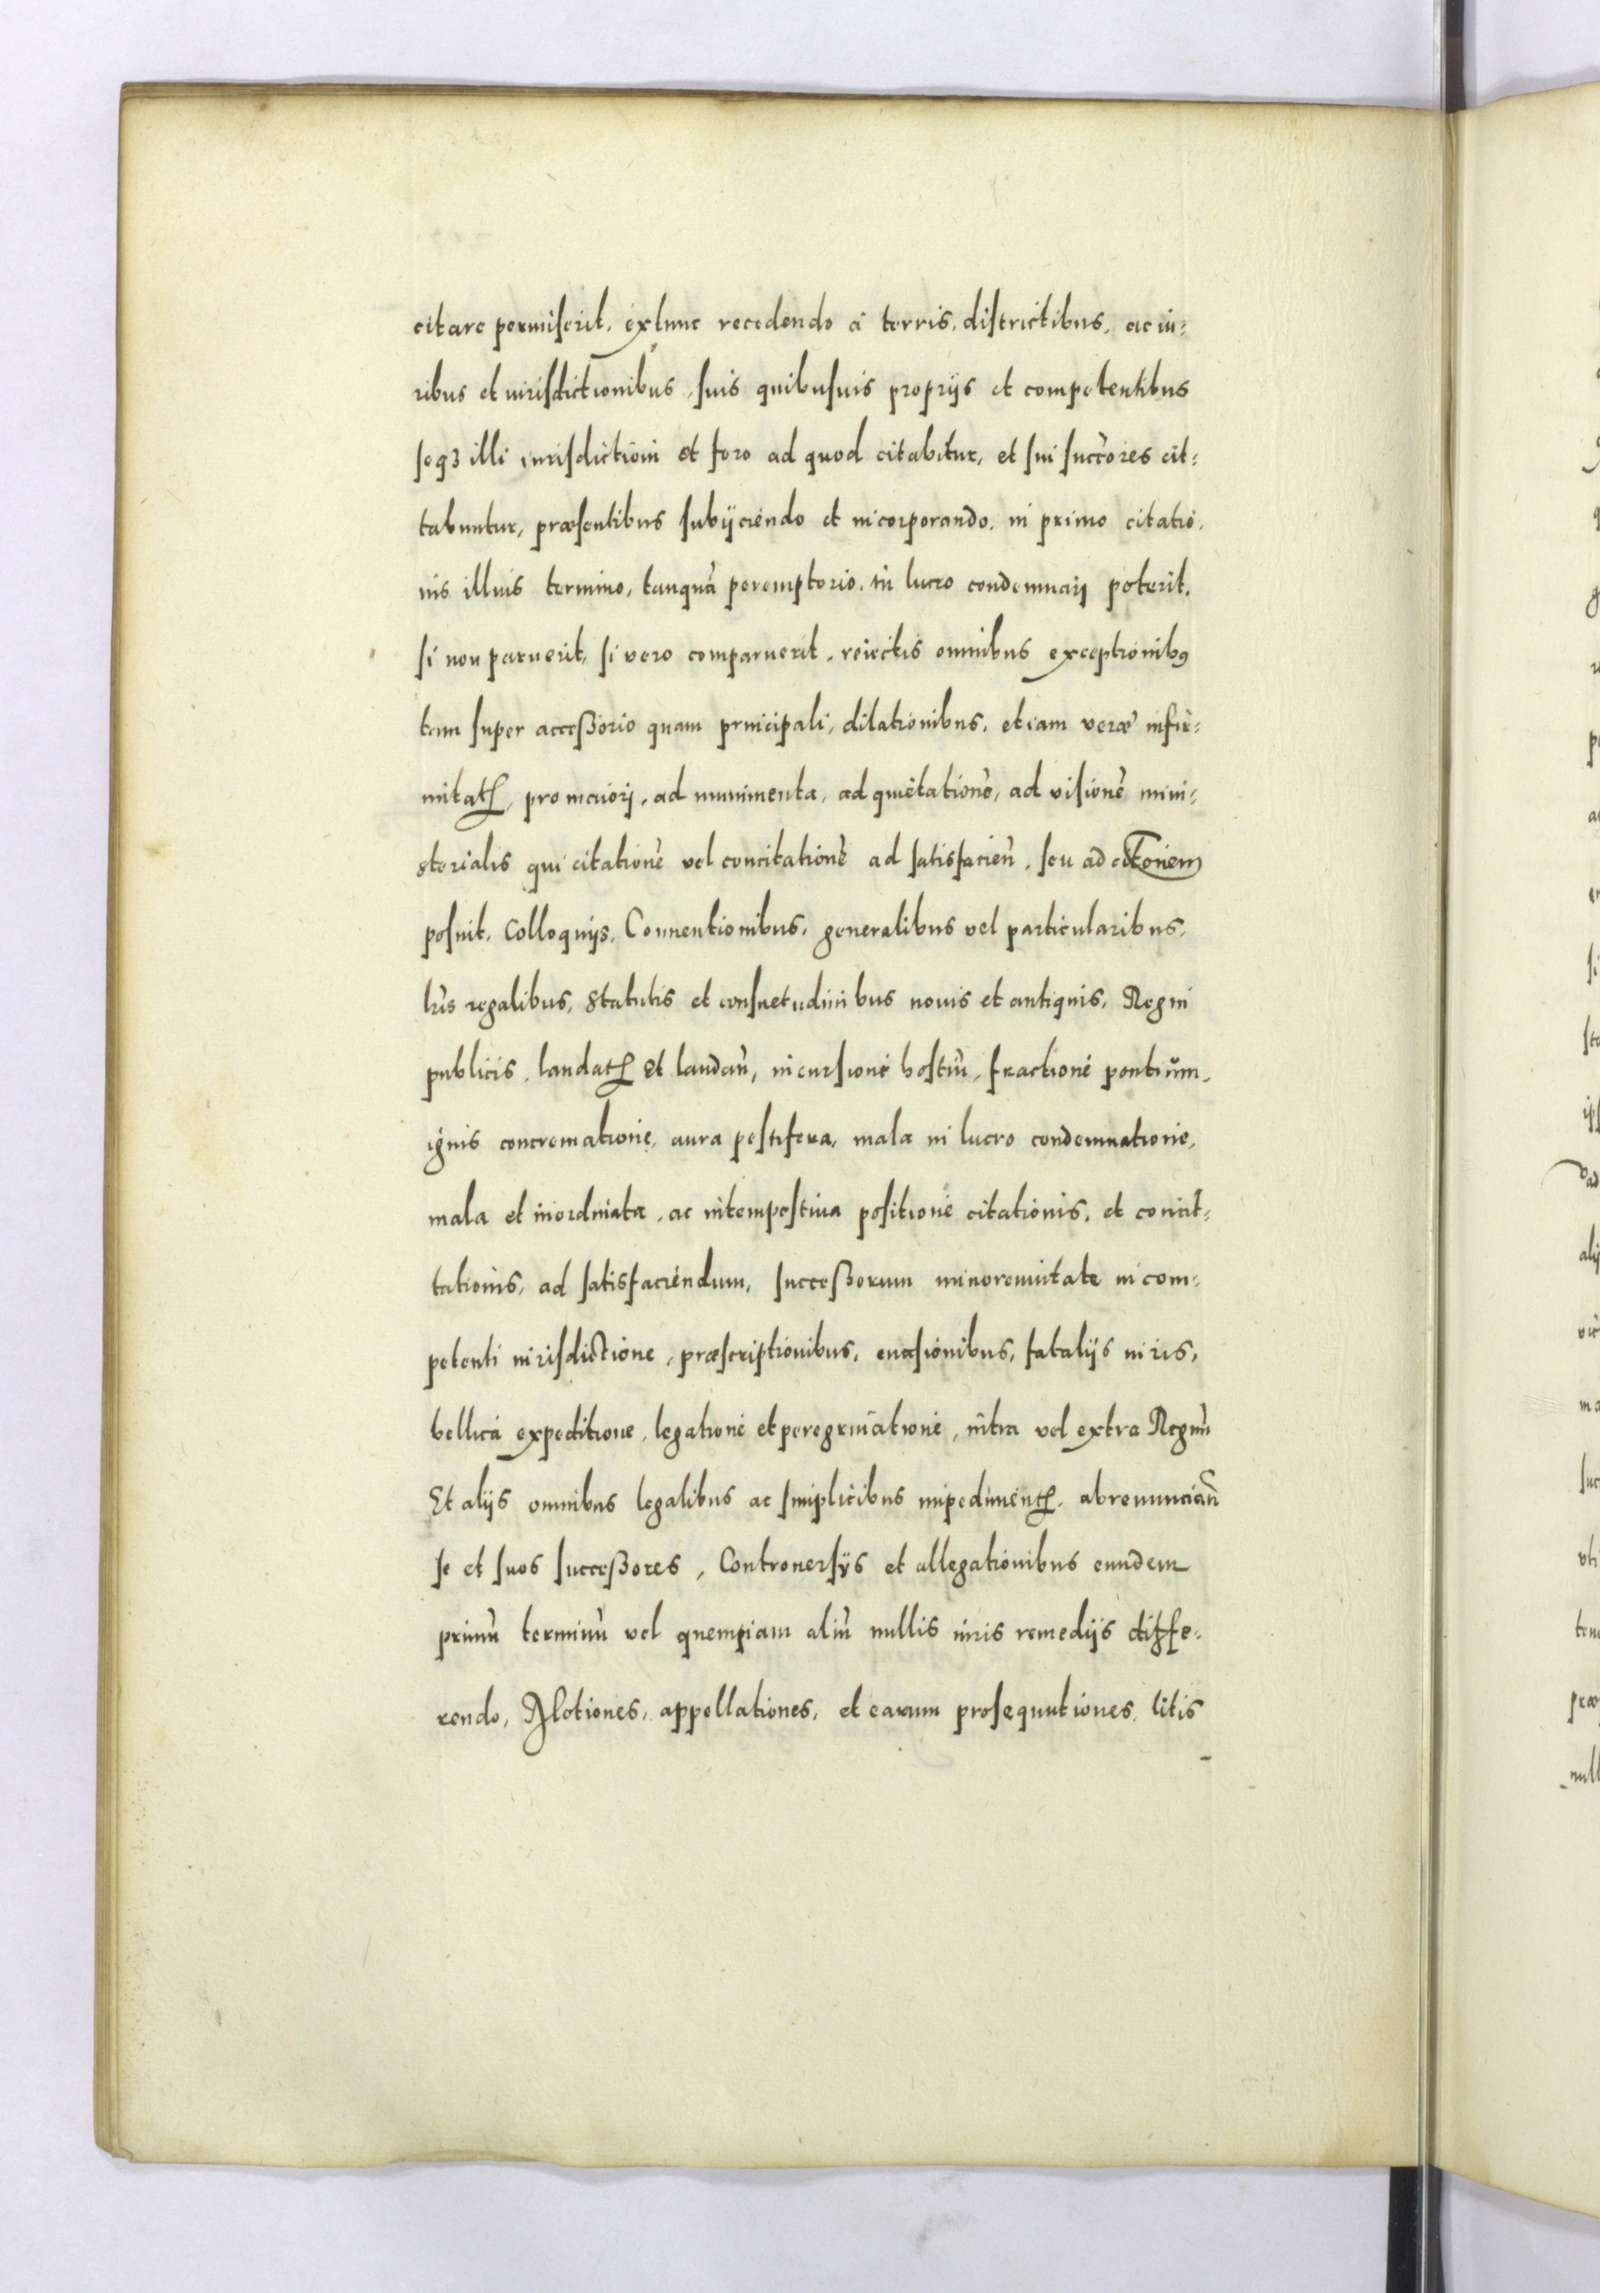 citare permiserit, extunc recedendo à terris, districtibus, ac iu-
ribus et iurisdictionibus, suis quibusuis proprijs et competentibus
seqʒ illi iurisdictioni et foro ad quod citabitur, et sui succ̃ores cit-
tabuntur, præsentibus subijciendo et incorporando, in primo citatio-
nis illius termino, tanquã peremptorio, in lucro condemnarj poterit,
si non paruerit, si vero comparuerit, reiectis omnibus exceptionibꝯ
tam super acceßorio quam principali, dilationibus, etiam veræ infir-
mitatꝭ, pro maiorj, ad munimenta, ad quietationẽ, ad visionẽ mini-
sterialis qui citationẽ vel concitationẽ ad satisfacieñ, seu ad
posuit, Colloquijs, Conuentionibus, generalibus vel particularibus,
lr̃is regalibus, Statutis et consuetudinibus nouis et antiquis, Regni
publicis, laudatꝭ Et laudañ, incursione hostiũ, fractione pontium,
ignis concrematione, aura pestifera, mala in lucro condemnatione,
mala et inordinata, ac intempestiua positione citationis, et concit-
tationis, ad satisfaciendum, succeßorum minorennitate incom-
petenti iurisdictione, præscriptionibus, euasionibus, fatalijs iuris,
bellica expeditione, legatione et peregrinatione, intra vel extra Regnũ
Et alijs omnibus legalibus ac simplicibus impedimentꝭ, abrenunciañ
se et suos succeßores, Controuersijs et allegationibus eundem
primũ terminũ vel quempiam aliũ nullis iuris remedijs diffe-
rendo, Motiones, appellationes, et earum prosequutiones, litis